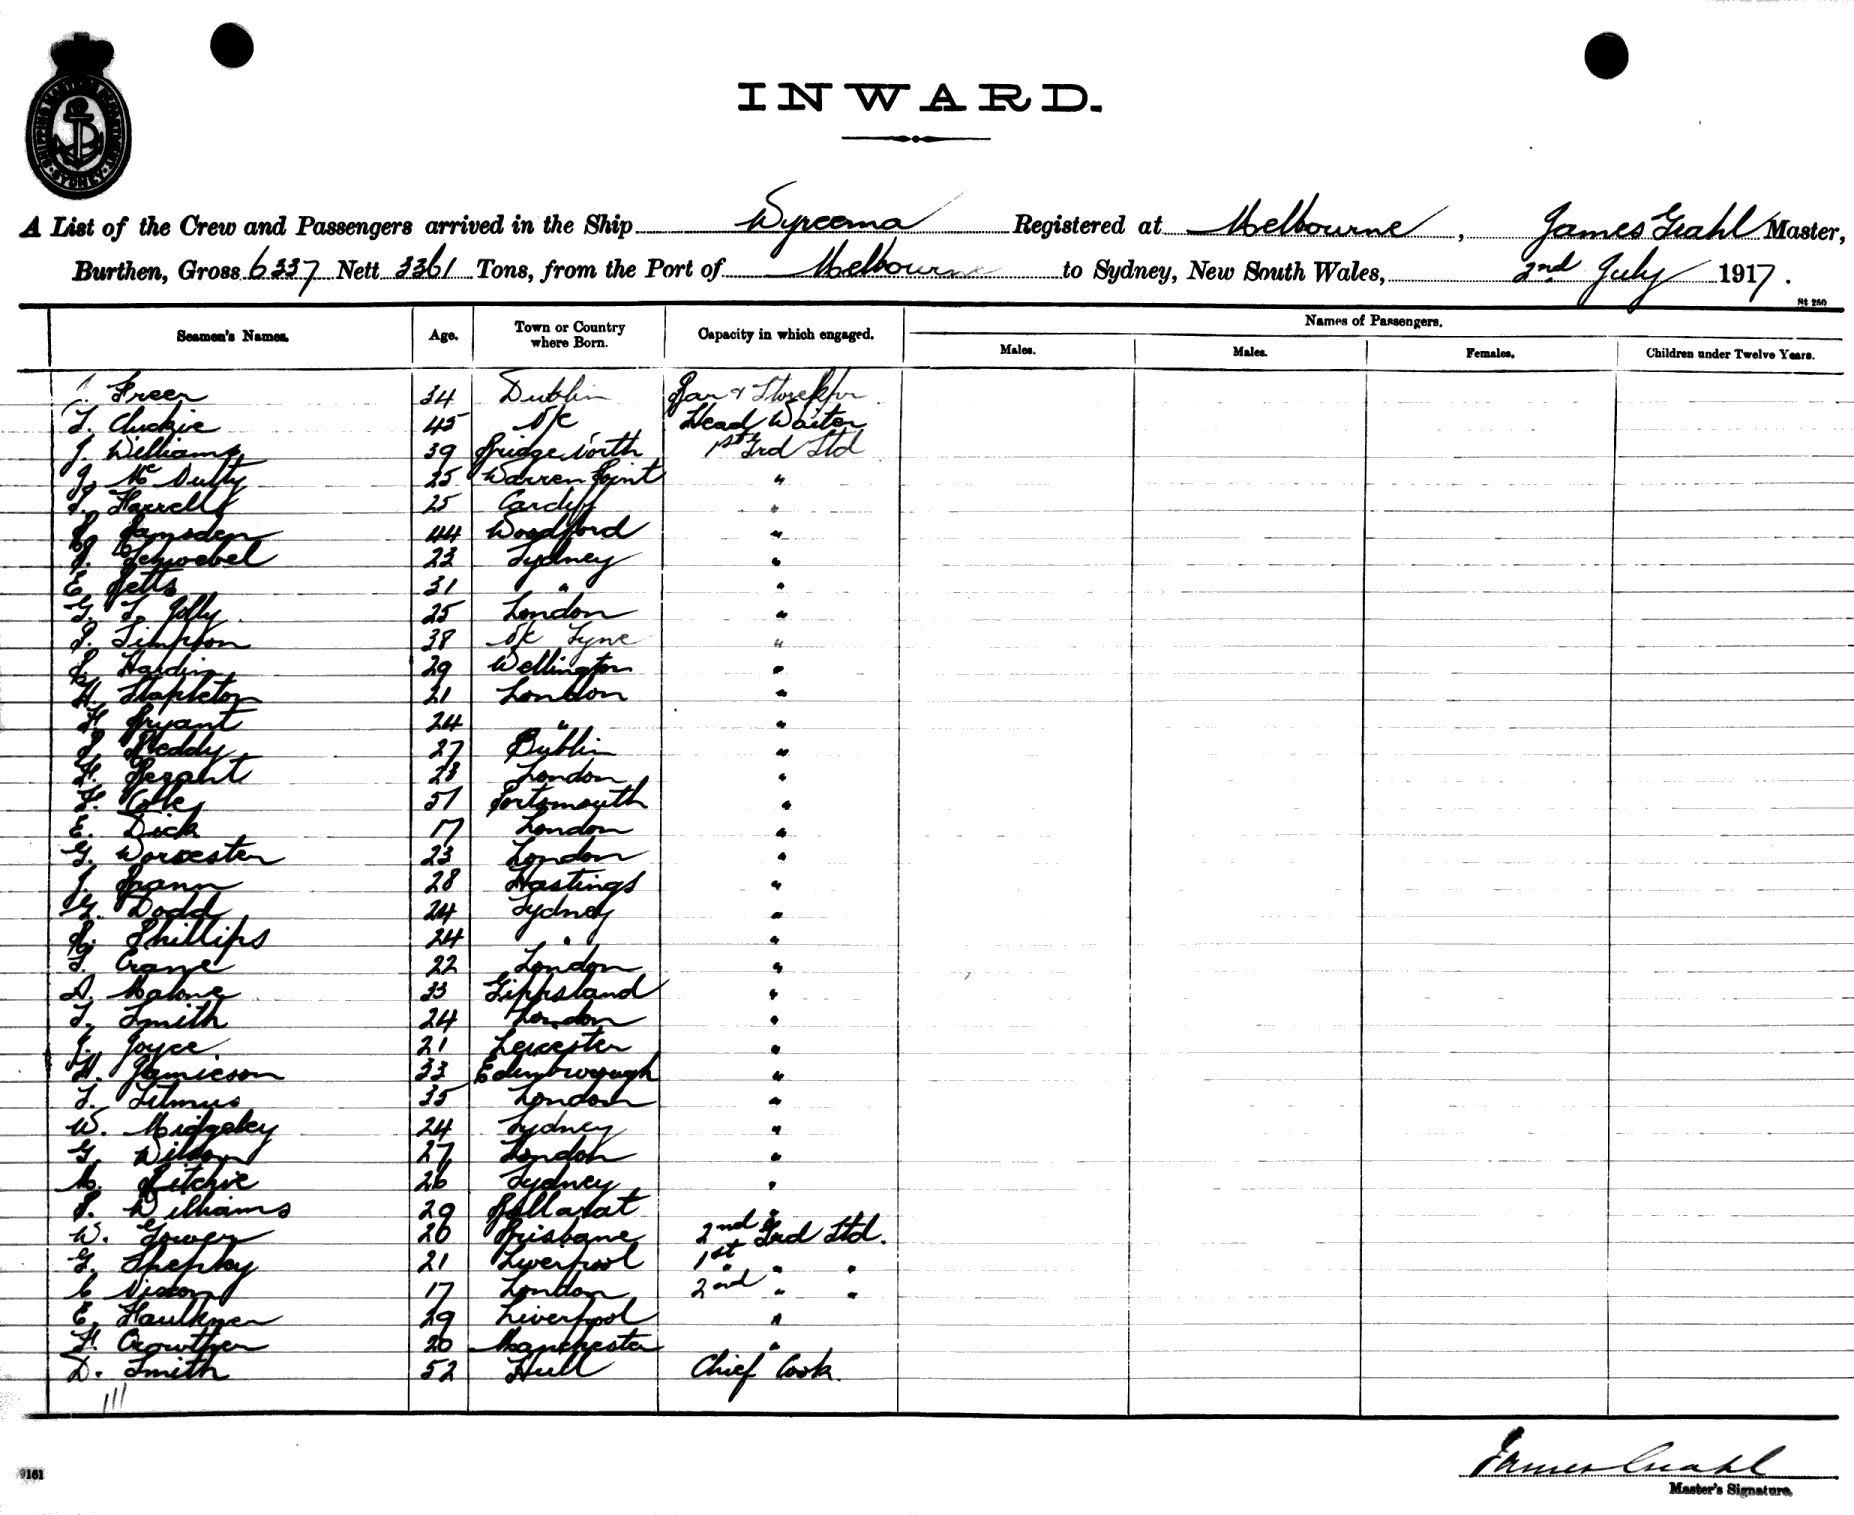 SHIPPING MASTER'S DEPARTMENT
SYDNEY
INWARD.
A List of the Crew and Passengers arrived in the Ship Wyreema Registered at Melbourne, James Grahl Master,
Burthen, Gross 6337 Nett 3361 Tons, from the Port of Melbourne to Sydney, New South Wales, 2nd July 1917.
St 250
Names of Passengers.
Seamen's Names. Age. Town or Country where Born. Capacity in which engaged. Males. Males. Females. Children under Twelve Years.
Freer 34 Dublin Bar & Storekpr.
45 Head Waiter
J. Williams 39 Bridge North 1st Grd Std
J. McNulty 25 Warren Point "
Farrell 25 Cardiff "
Ramsden 44 Woodford "
Schoebel 23 Sydney "
E. Betts 31 " "
G. L. Jolly 25 London "
S. Simpson 38 Tyne "
Harding 29 Wellington "
H. Stapleton 21 London "
F. Bryant 24 " "
P. Reddy 27 Dublin "
23 London "
F. 51 Portsmouth "
E. Dick 17 London "
G. Worcester 23 London "
J. Spann 28 Hastings "
G. Dodd 24 Sydney "
R. Phillips 24 " "
Crane 22 London "
D. Malone 33 Gippsland "
T. Smith 24 London "
J. Joyce. 21 Leicester "
H. Jamieson 33 Edinburough "
T. Titmus 35 London "
W. Midgeley 24 Sydney "
G. Wilson 27 London "
M. Ritchie 26 Sydney "
P. Williams 29 Ballarat "
W. Gower 20 Brisbane 2nd Grd Std.
G. Shepley 21 Liverpool 1st " "
C Dixon 17 London 2nd " "
E. Faulkner 29 Liverpool "
F. Crowther 20 Manchester "
D. Smith 52 Hull Chief Cook.
James Grahl
Master's Signature.